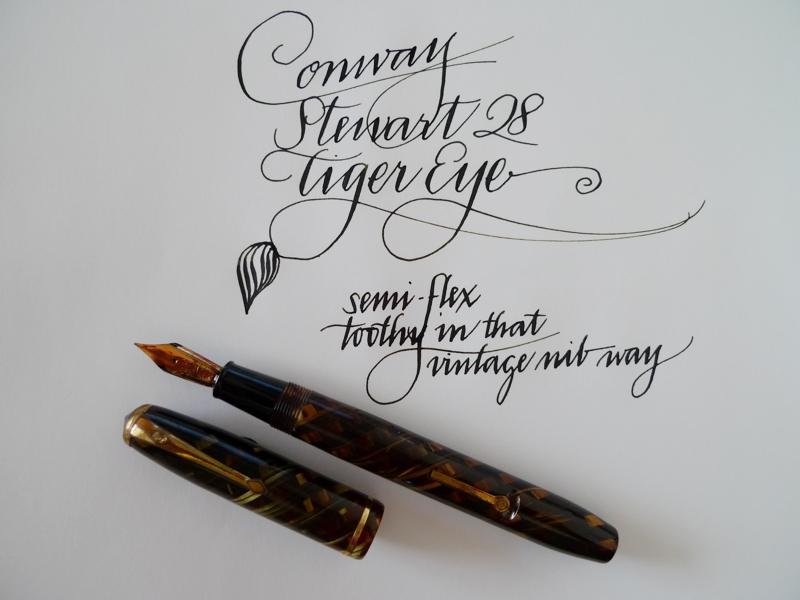 Conway
Stewart 28
Tiger Eye
semi-flex
toothy in that
vintage nib way